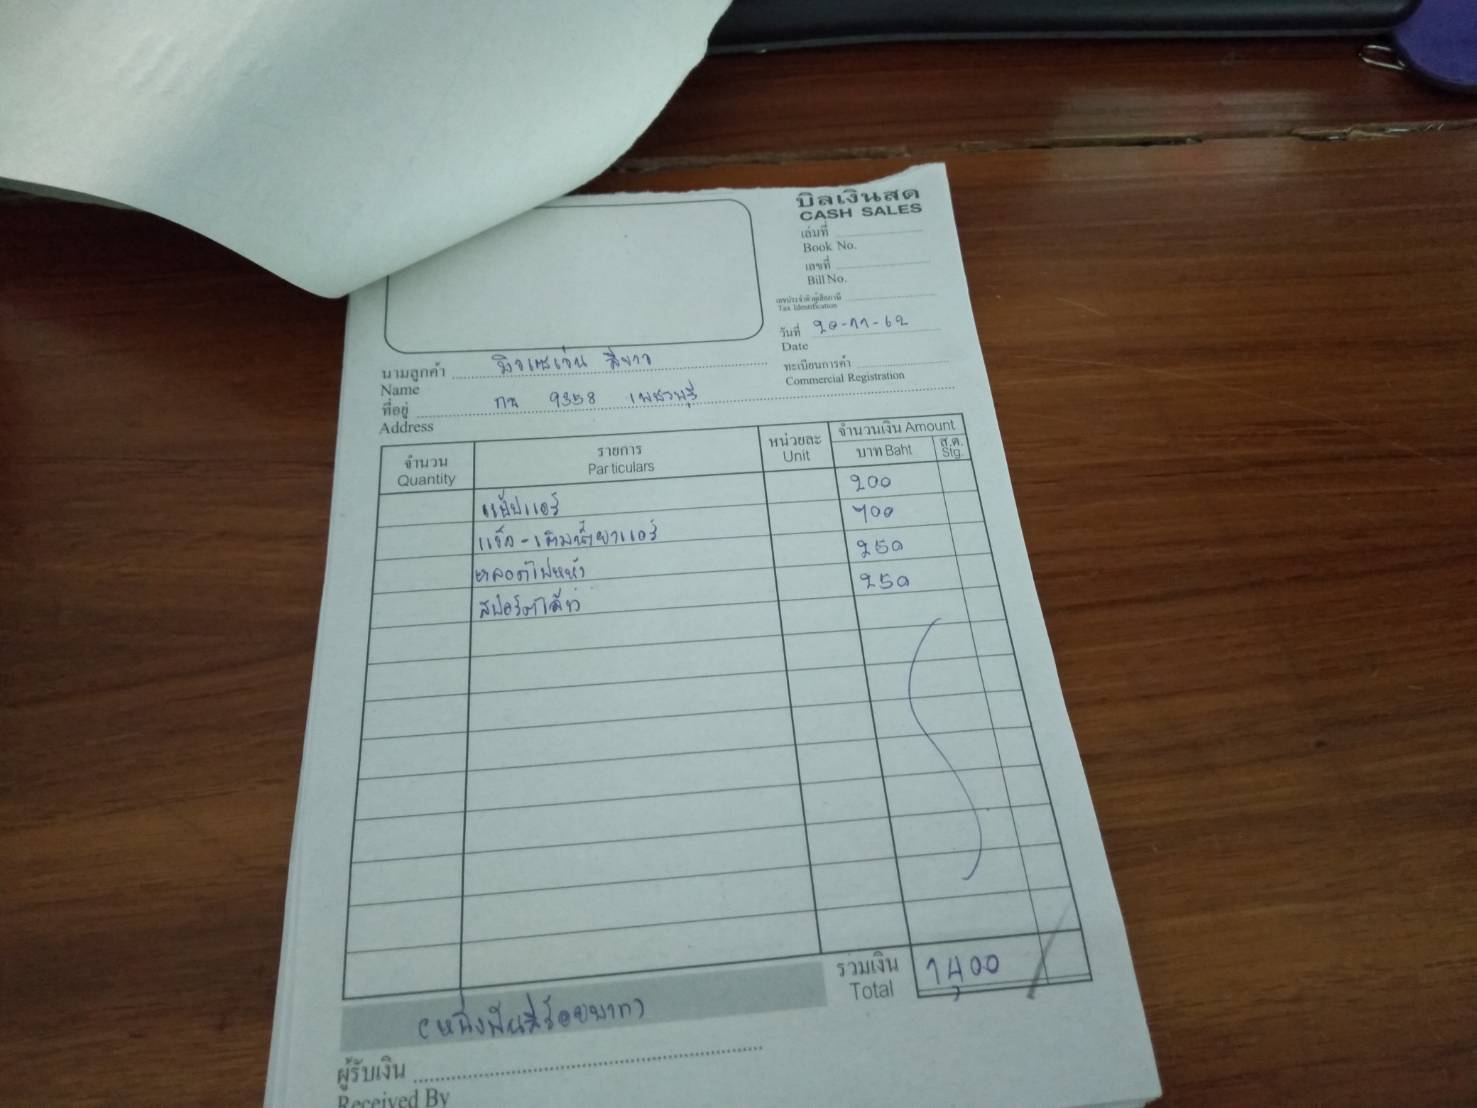 บิลเงินสด
CASH SALES
เล่มที่
Book No.
เลขที่
Bill No.
เลขประจำตัวผู้เสียภาษี
Tax Identification
วันที่ 20-11-62
Date
ทะเบียนการค้า
Commercial Registration
นามลูกค้า สีขาว
Name
ที่อยู่ กน 9358 เพชรบุรี
Address
จำนวน รายการ หน่วยละ จำนวนเงิน Amount
Quantity Particulars Unit บาท Baht ส.ต. Stg.
แป๊ปแอร์ 200
เช็ค-เติมน้ำยาแอร์ 700
หลอดไฟหน้า 250
สปอร์ตไล้ท์ 250
รวมเงิน 1,400
Total
(หนึ่งพันสี่ร้อยบาท)
ผู้รับเงิน
Received By